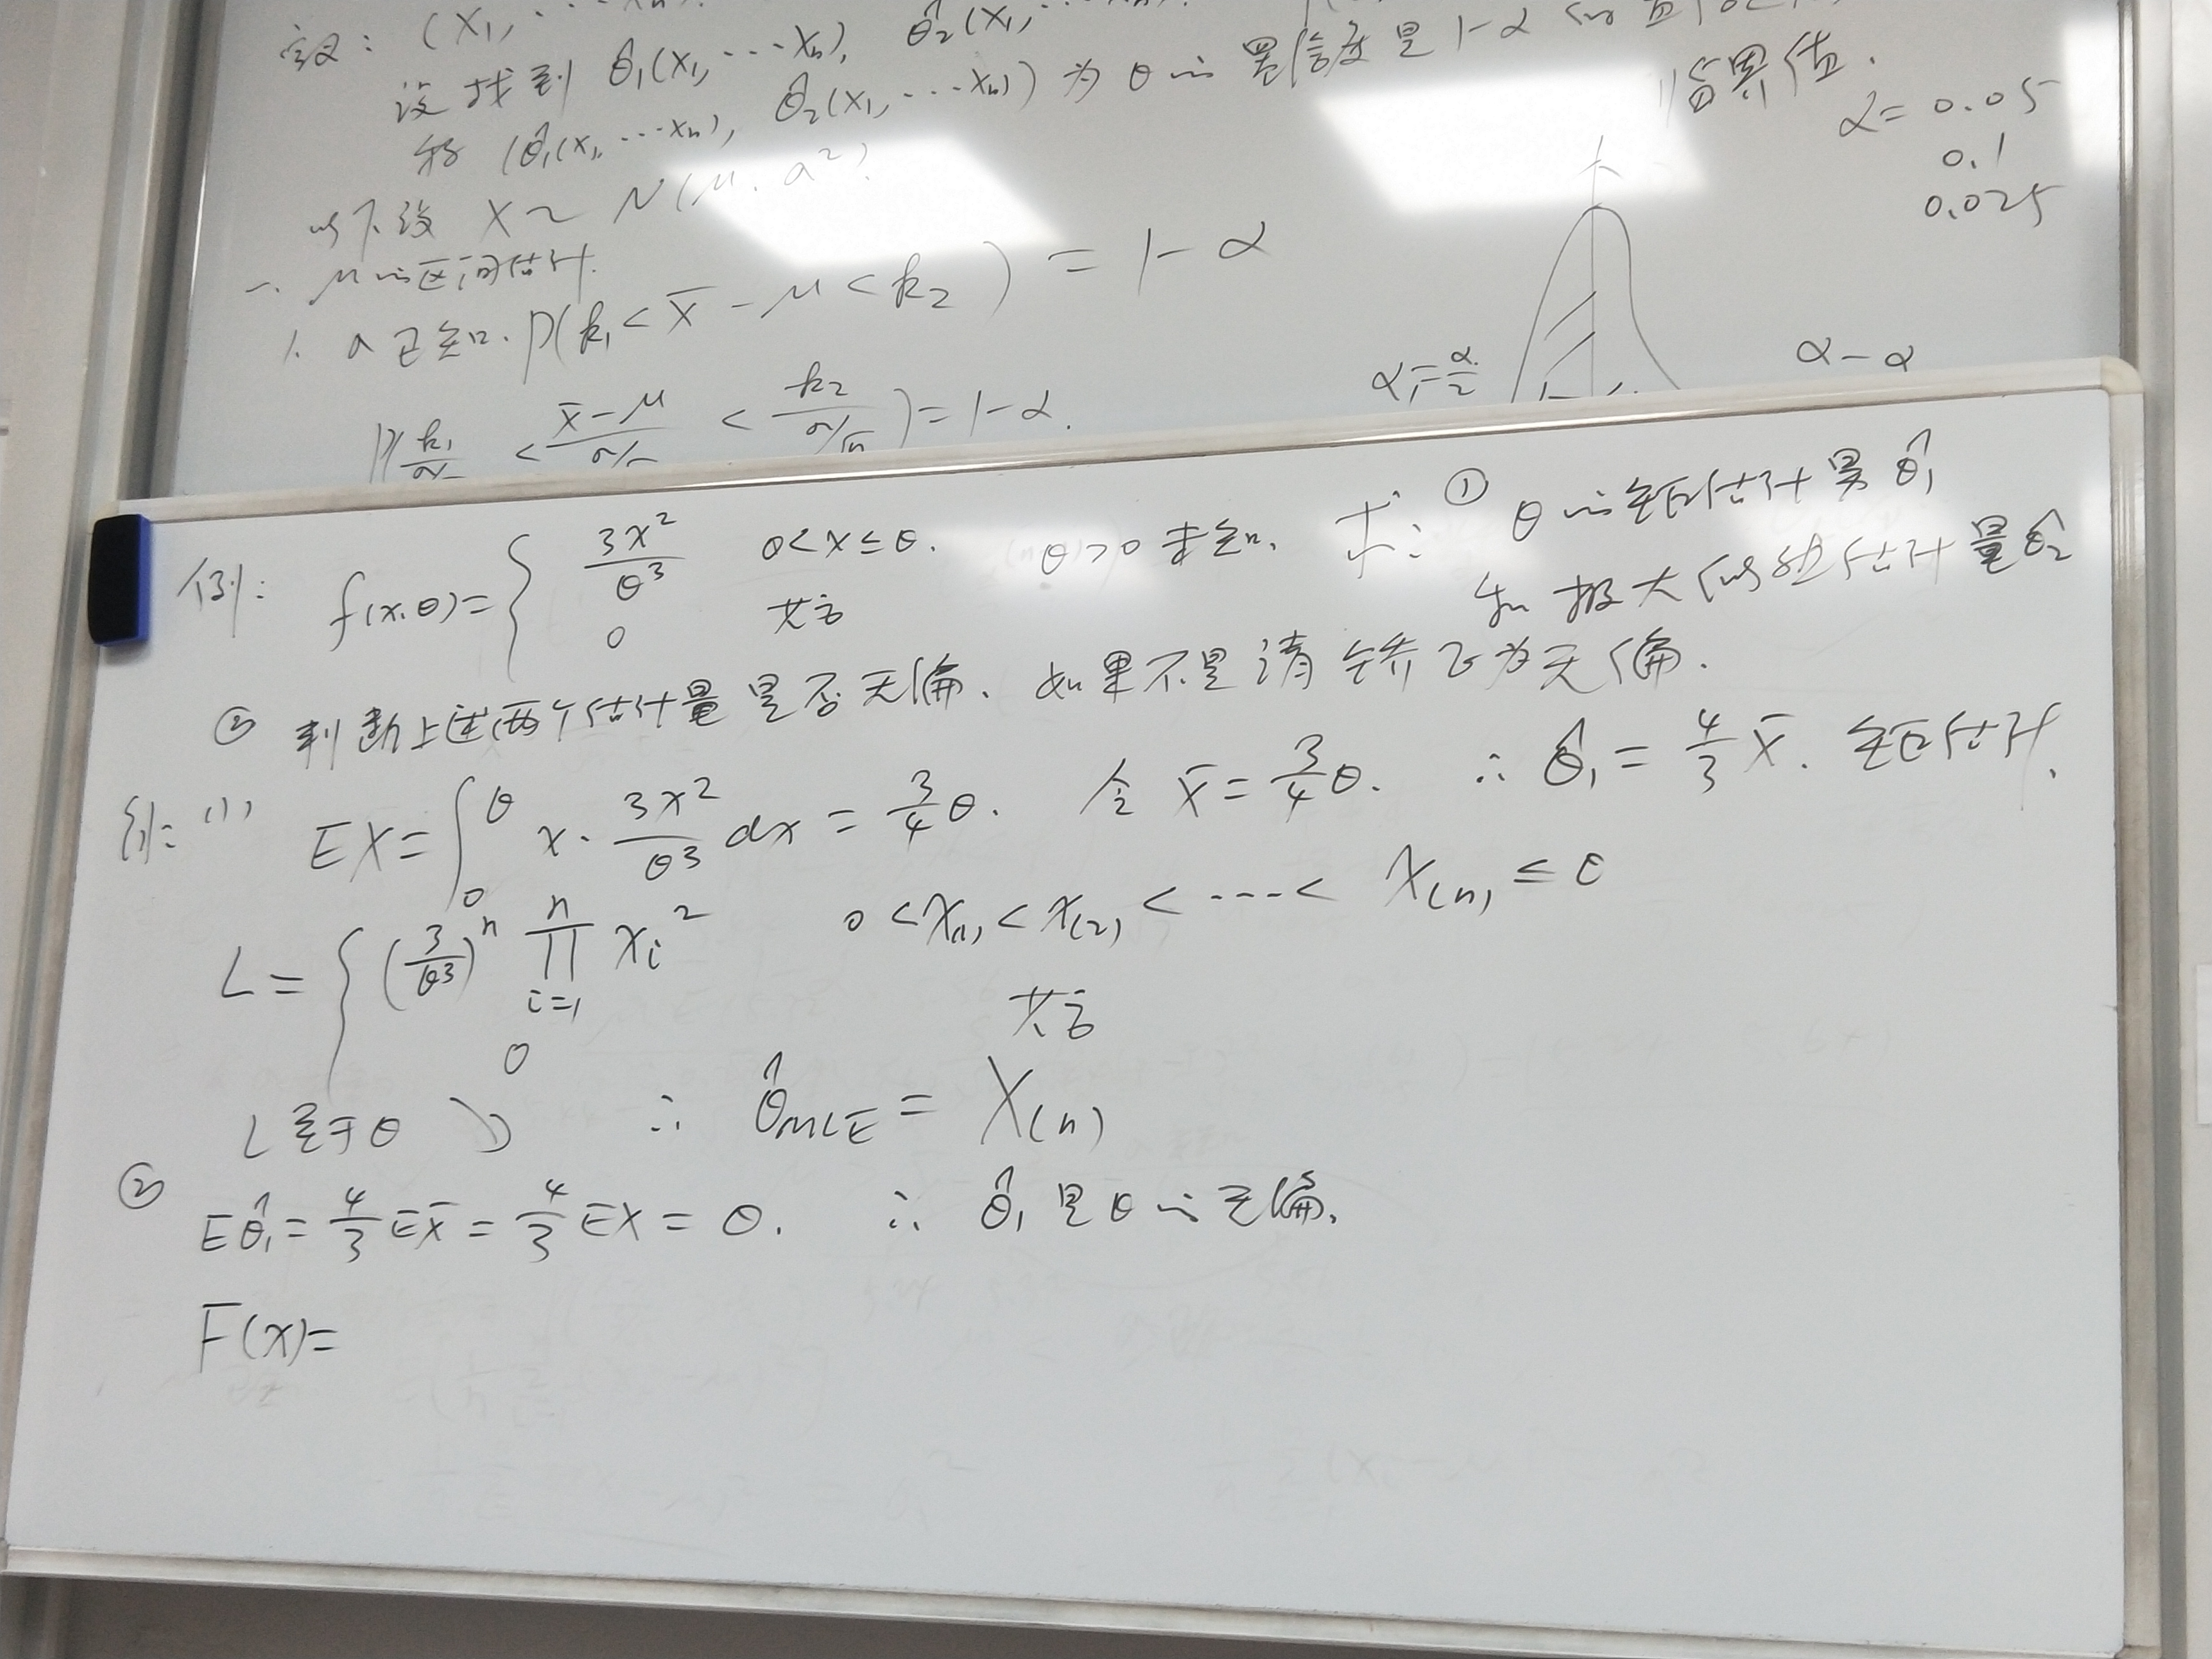 定义: (X₁, ⋯ Xₙ).
设找到 θ̂₁(X₁, ⋯Xₙ), θ̂₂(X₁, ⋯Xₙ).
称 (θ̂₁(X₁, ⋯Xₙ), θ̂₂(X₁, ⋯Xₙ)) 为 θ 的置信度是 1-α 的
临界值.
α = 0.05
0.1
0.025
以下设 X ~ N(μ, σ²).
一. μ的区间估计.
1. σ已知. P(k₁ < X̄ - μ < k₂) = 1-α
P(k₁/σ < (X̄-μ)/σ/ < k₂/(σ/√n)) = 1-α.
α₁ = α/2
α-α
例: f(x,θ) = { 3x²/θ³ 0<x≤θ. θ>0 未知. 求: ① θ的矩估计量 θ̂₁
0 其它 和极大似然估计量 θ̂₂
② 判断上述两个估计量是否无偏. 如果不是请矫正为无偏.
解: (1) EX = ∫₀^θ x · 3x²/θ³ dx = 3/4 θ. 令 X̄ = 3/4 θ. ∴ θ̂₁ = 4/3 X̄. 矩估计.
L = { (3/θ³)ⁿ ∏ᵢ₌₁ⁿ xᵢ² 0 < x₍₁₎ < x₍₂₎ < ---- < x₍ₙ₎ ≤ θ
0 其它
L 关于 θ ↘ ∴ θ̂MLE = X₍ₙ₎
② Eθ̂₁ = 4/3 EX̄ = 4/3 EX = θ. ∴ θ̂₁ 是 θ 的无偏.
F(x) =